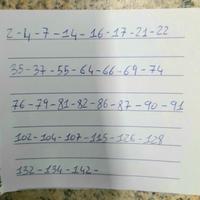 2-4-7-14-16-17-21-22
35-37-55-64-66-69-74
76-79-81-82-86-87-90-91
102-104-107-115-126-128
132-134-142-